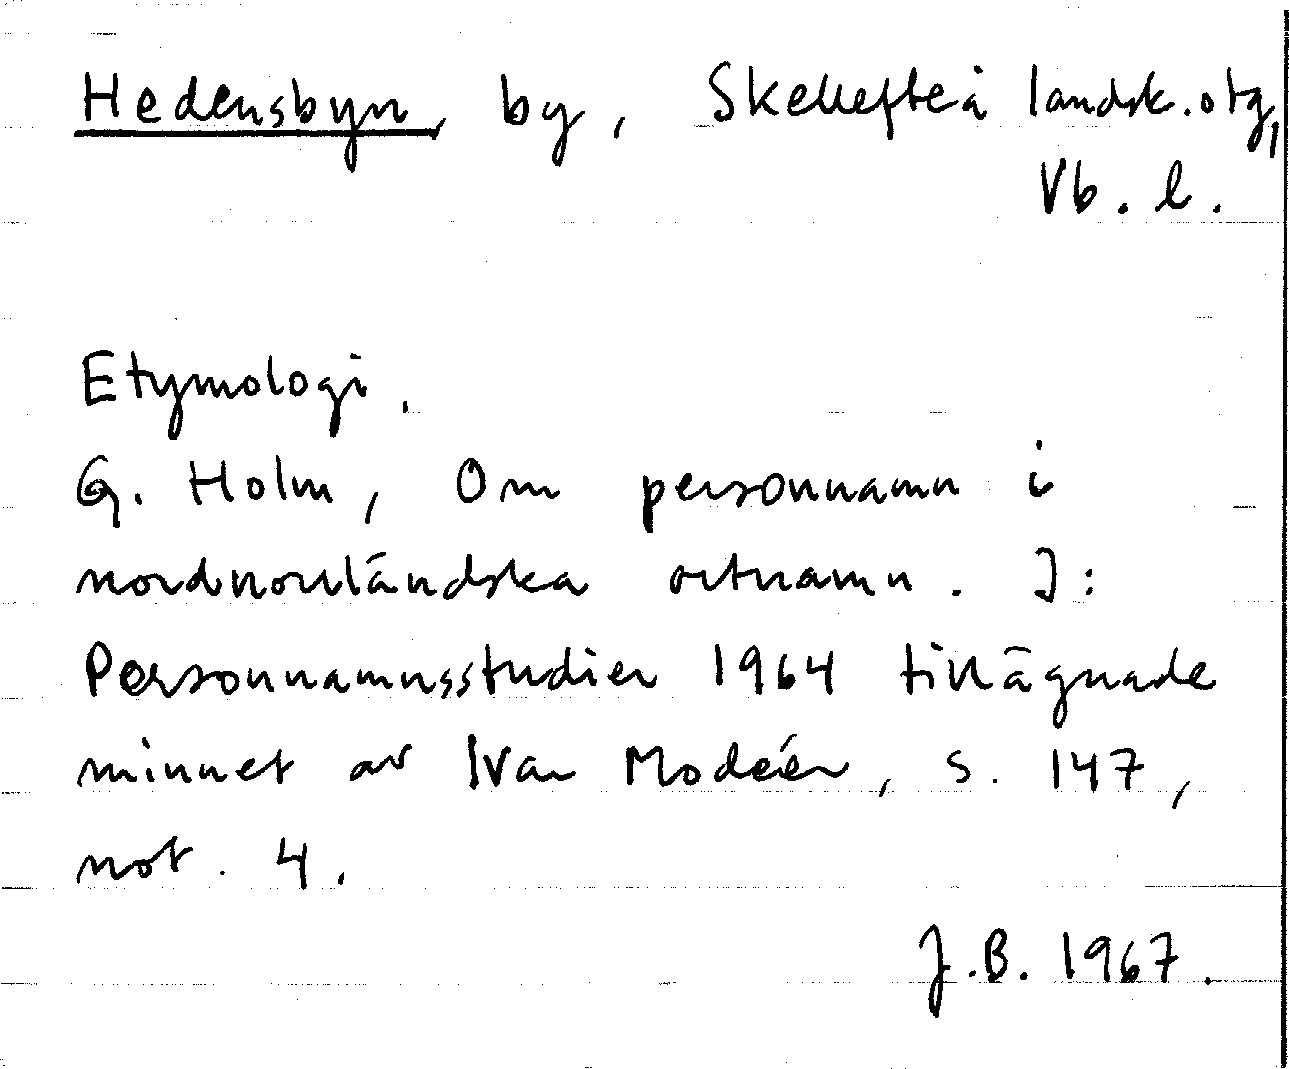 Hedensbyn, by, Skellefteå landsk. otg,
Vb. l.
Etymologi.
G. Holm, Om personnamn i
nordnorrländska ortnamn. I:
Personnamnsstudier 1964 tillägnade
minnet av Ivar Modéer, s. 147,
not. 4.
J.B. 1967.